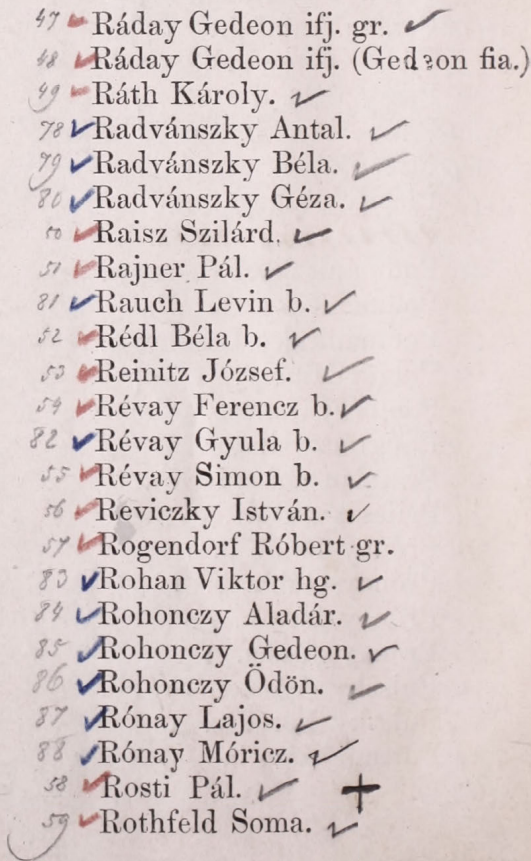 47 Ráday Gedeon ifj. gr.
48 Ráday Gedeon ifj. (Gedeon fia.)
49 Ráth Károly.
78 Radvánszky Antal.
79 Radvánszky Béla.
80 Radvánszky Géza.
50 Raisz Szilárd.
51 Rajner Pál.
81 Rauch Levin b.
52 Rédl Béla b.
53 Reinitz József.
54 Révay Ferencz b.
82 Révay Gyula b.
55 Révay Simon b.
56 Reviczky István.
57 Rogendorf Róbert gr.
83 Rohan Viktor hg.
84 Rohonczy Aladár.
85 Rohonczy Gedeon.
86 Rohonczy Ödön.
87 Rónay Lajos.
88 Rónay Móricz.
58 Rosti Pál.
59 Rothfeld Soma.